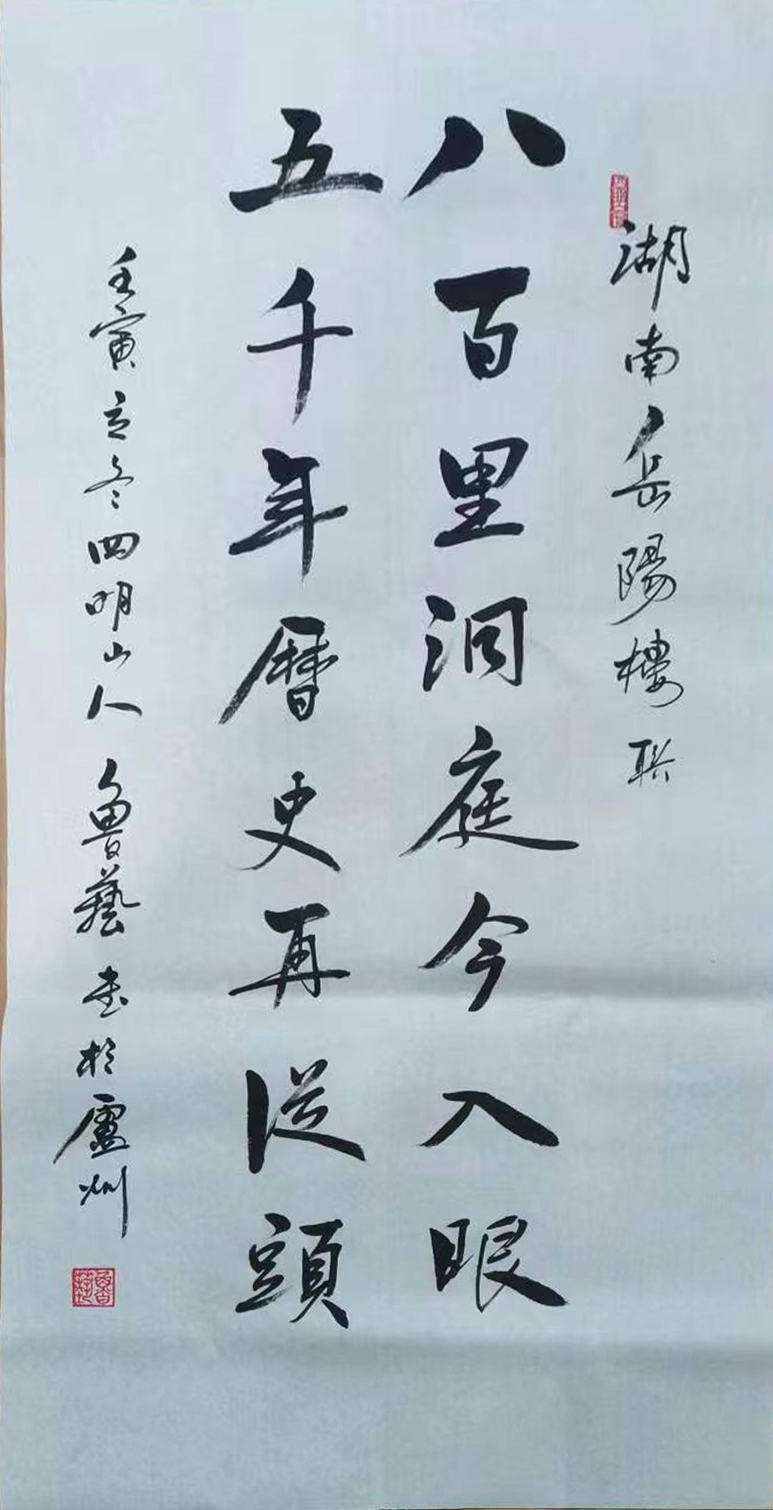 湖南岳陽樓联
八百里洞庭今入眼
五千年曆史再從頭
壬寅立冬四明山人魯藝书於廬州
魯藝